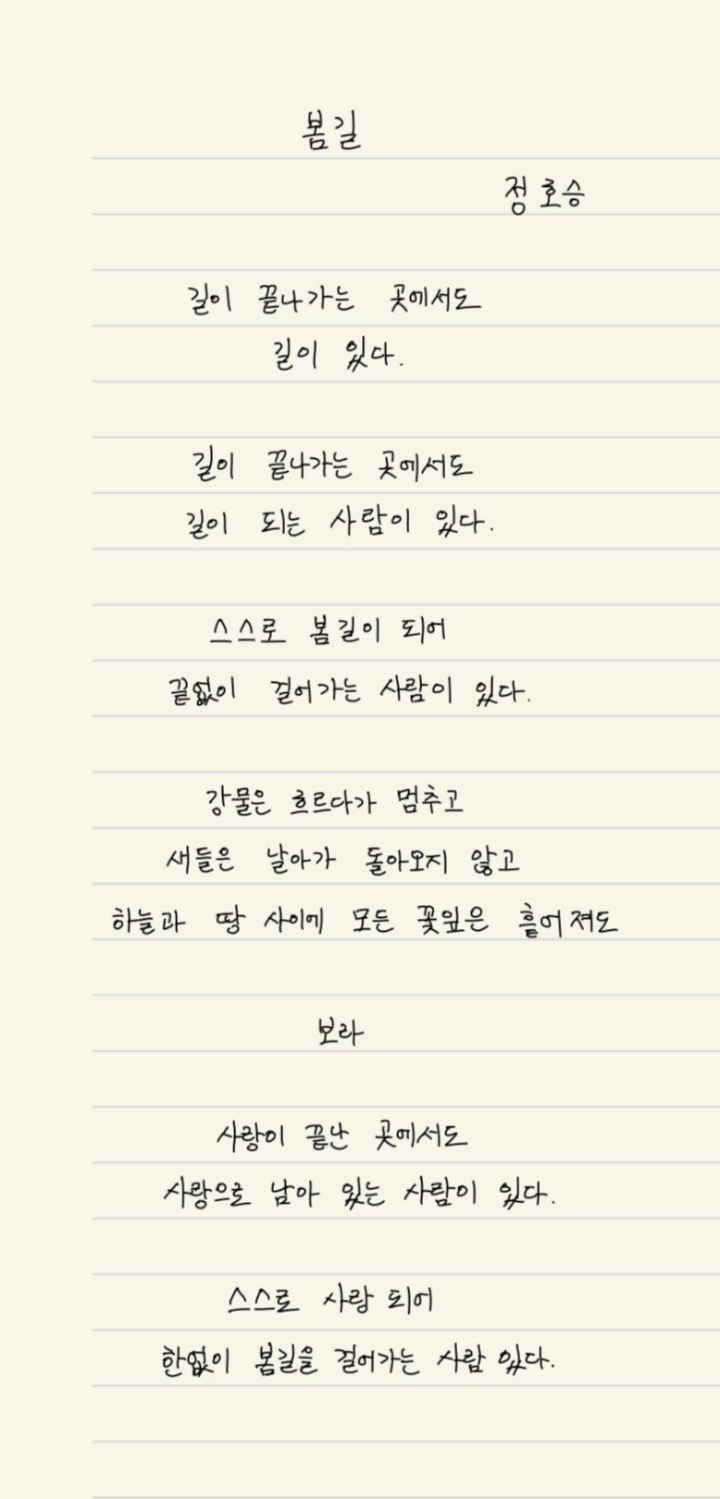 봄길
정호승
길이 끝나가는 곳에서도
길이 있다.
길이 끝나가는 곳에서도
길이 되는 사람이 있다.
스스로 봄길이 되어
끝없이 걸어가는 사람이 있다.
강물은 흐르다가 멈추고
새들은 날아가 돌아오지 않고
하늘과 땅 사이에 모든 꽃잎은 흩어져도
보라
사랑이 끝난 곳에서도
사랑으로 남아 있는 사람이 있다.
스스로 사랑 되어
한없이 봄길을 걸어가는 사람 있다.